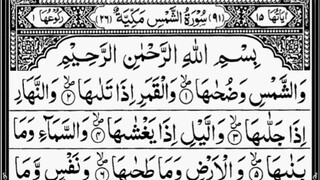 اٰيَاتُهَا ١٥ (٩١) سُوْرَةُ الشَّمْسِ مَكِّيَّةٌ (٢٦) رُكُوْعُهَا ١
بِسْمِ اللّٰهِ الرَّحْمٰنِ الرَّحِيْمِ
وَالشَّمْسِ وَضُحٰىهَا ۙ﴿١﴾ وَالْقَمَرِ اِذَا تَلٰىهَا ۙ﴿٢﴾ وَالنَّهَارِ
اِذَا جَلّٰىهَا ۙ﴿٣﴾ وَالَّيْلِ اِذَا يَغْشٰىهَا ۙ﴿٤﴾ وَالسَّمَآءِ وَمَا
بَنٰىهَا ۙ﴿٥﴾ وَالْاَرْضِ وَمَا طَحٰىهَا ۙ﴿٦﴾ وَنَفْسٍ وَّمَا